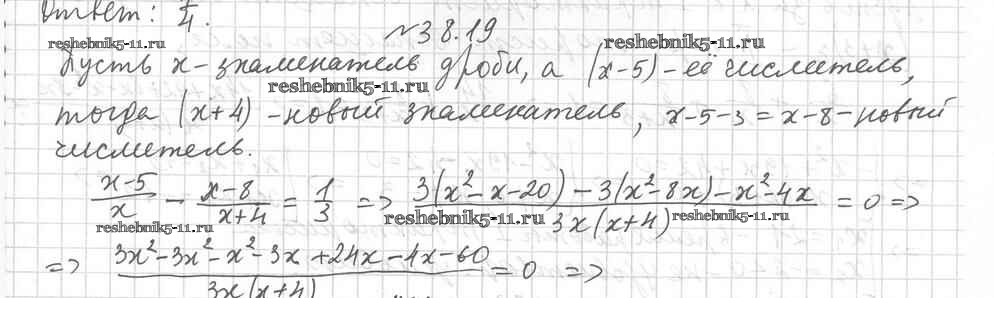 Ответ: 1/4.
№38.19
reshebnik5-11.ru reshebnik5-11.ru
Пусть x - знаменатель дроби, а (x-5) - её числитель,
reshebnik5-11.ru
тогда (x+4) - новый знаменатель, x-5-3 = x-8 - новый
числитель.
(x-5)/x - (x-8)/(x+4) = 1/3 => (3(x²-x-20) - 3(x²-8x) - x²-4x)/(3x(x+4)) = 0 =>
reshebnik5-11.ru reshebnik5-11.ru reshebnik5-11.ru
=> (3x²-3x²-x²-3x+24x-4x-60)/(3x(x+4)) = 0 =>